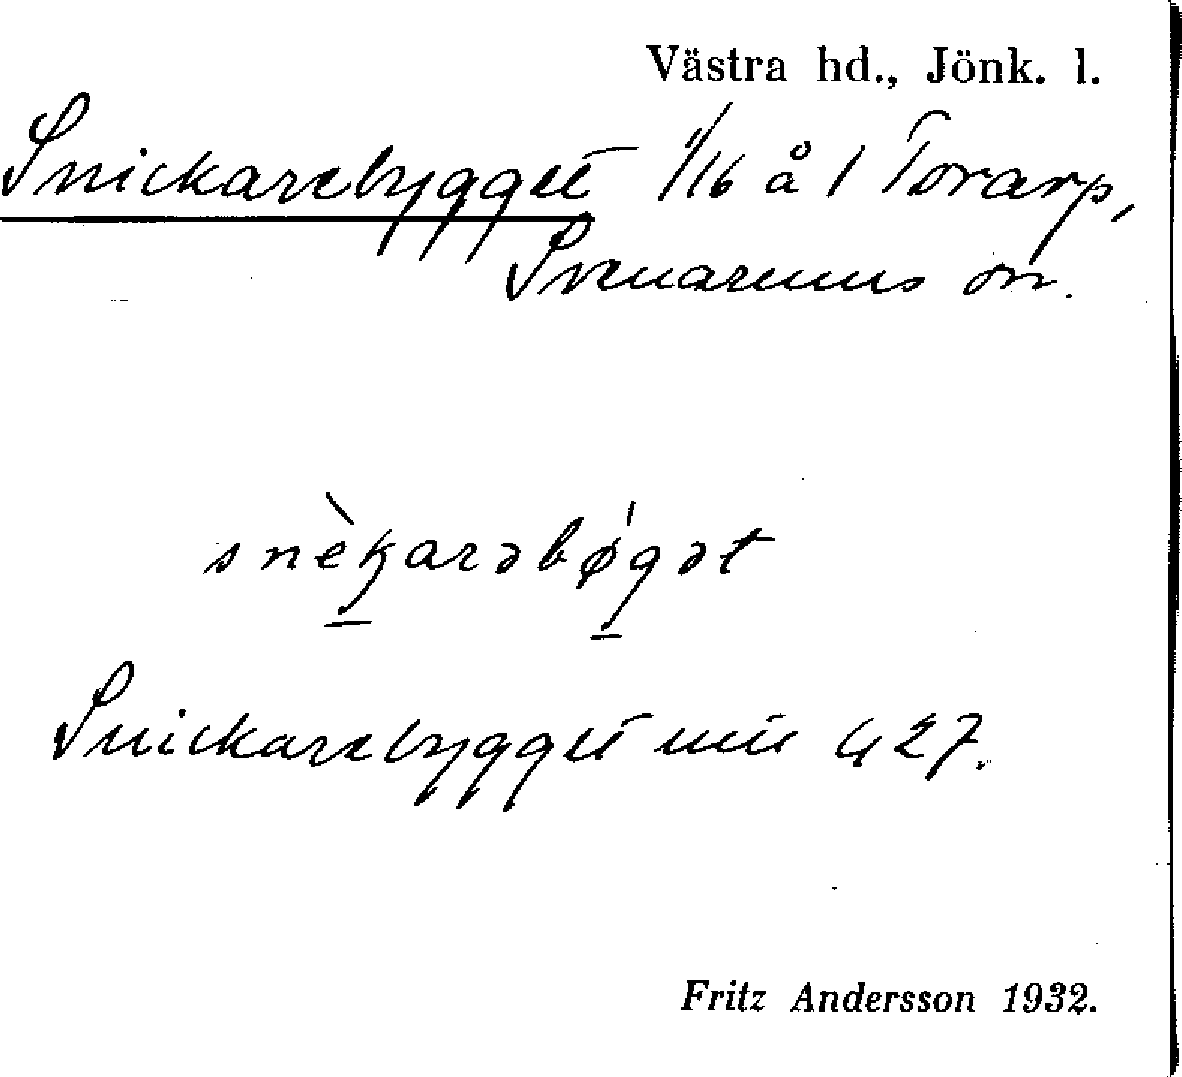 Västra hd., Jönk. l.
Snickarebygget 1/16 å 1 Torarp,
Svenarums sn.
snèkarəbǿgət
Snickarebygget mtl 427.
Fritz Andersson 1932.